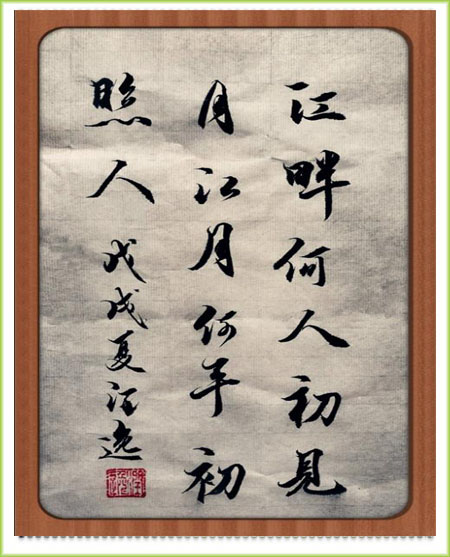 江畔何人初見
月江月何年初
照人
戊戌夏江逸